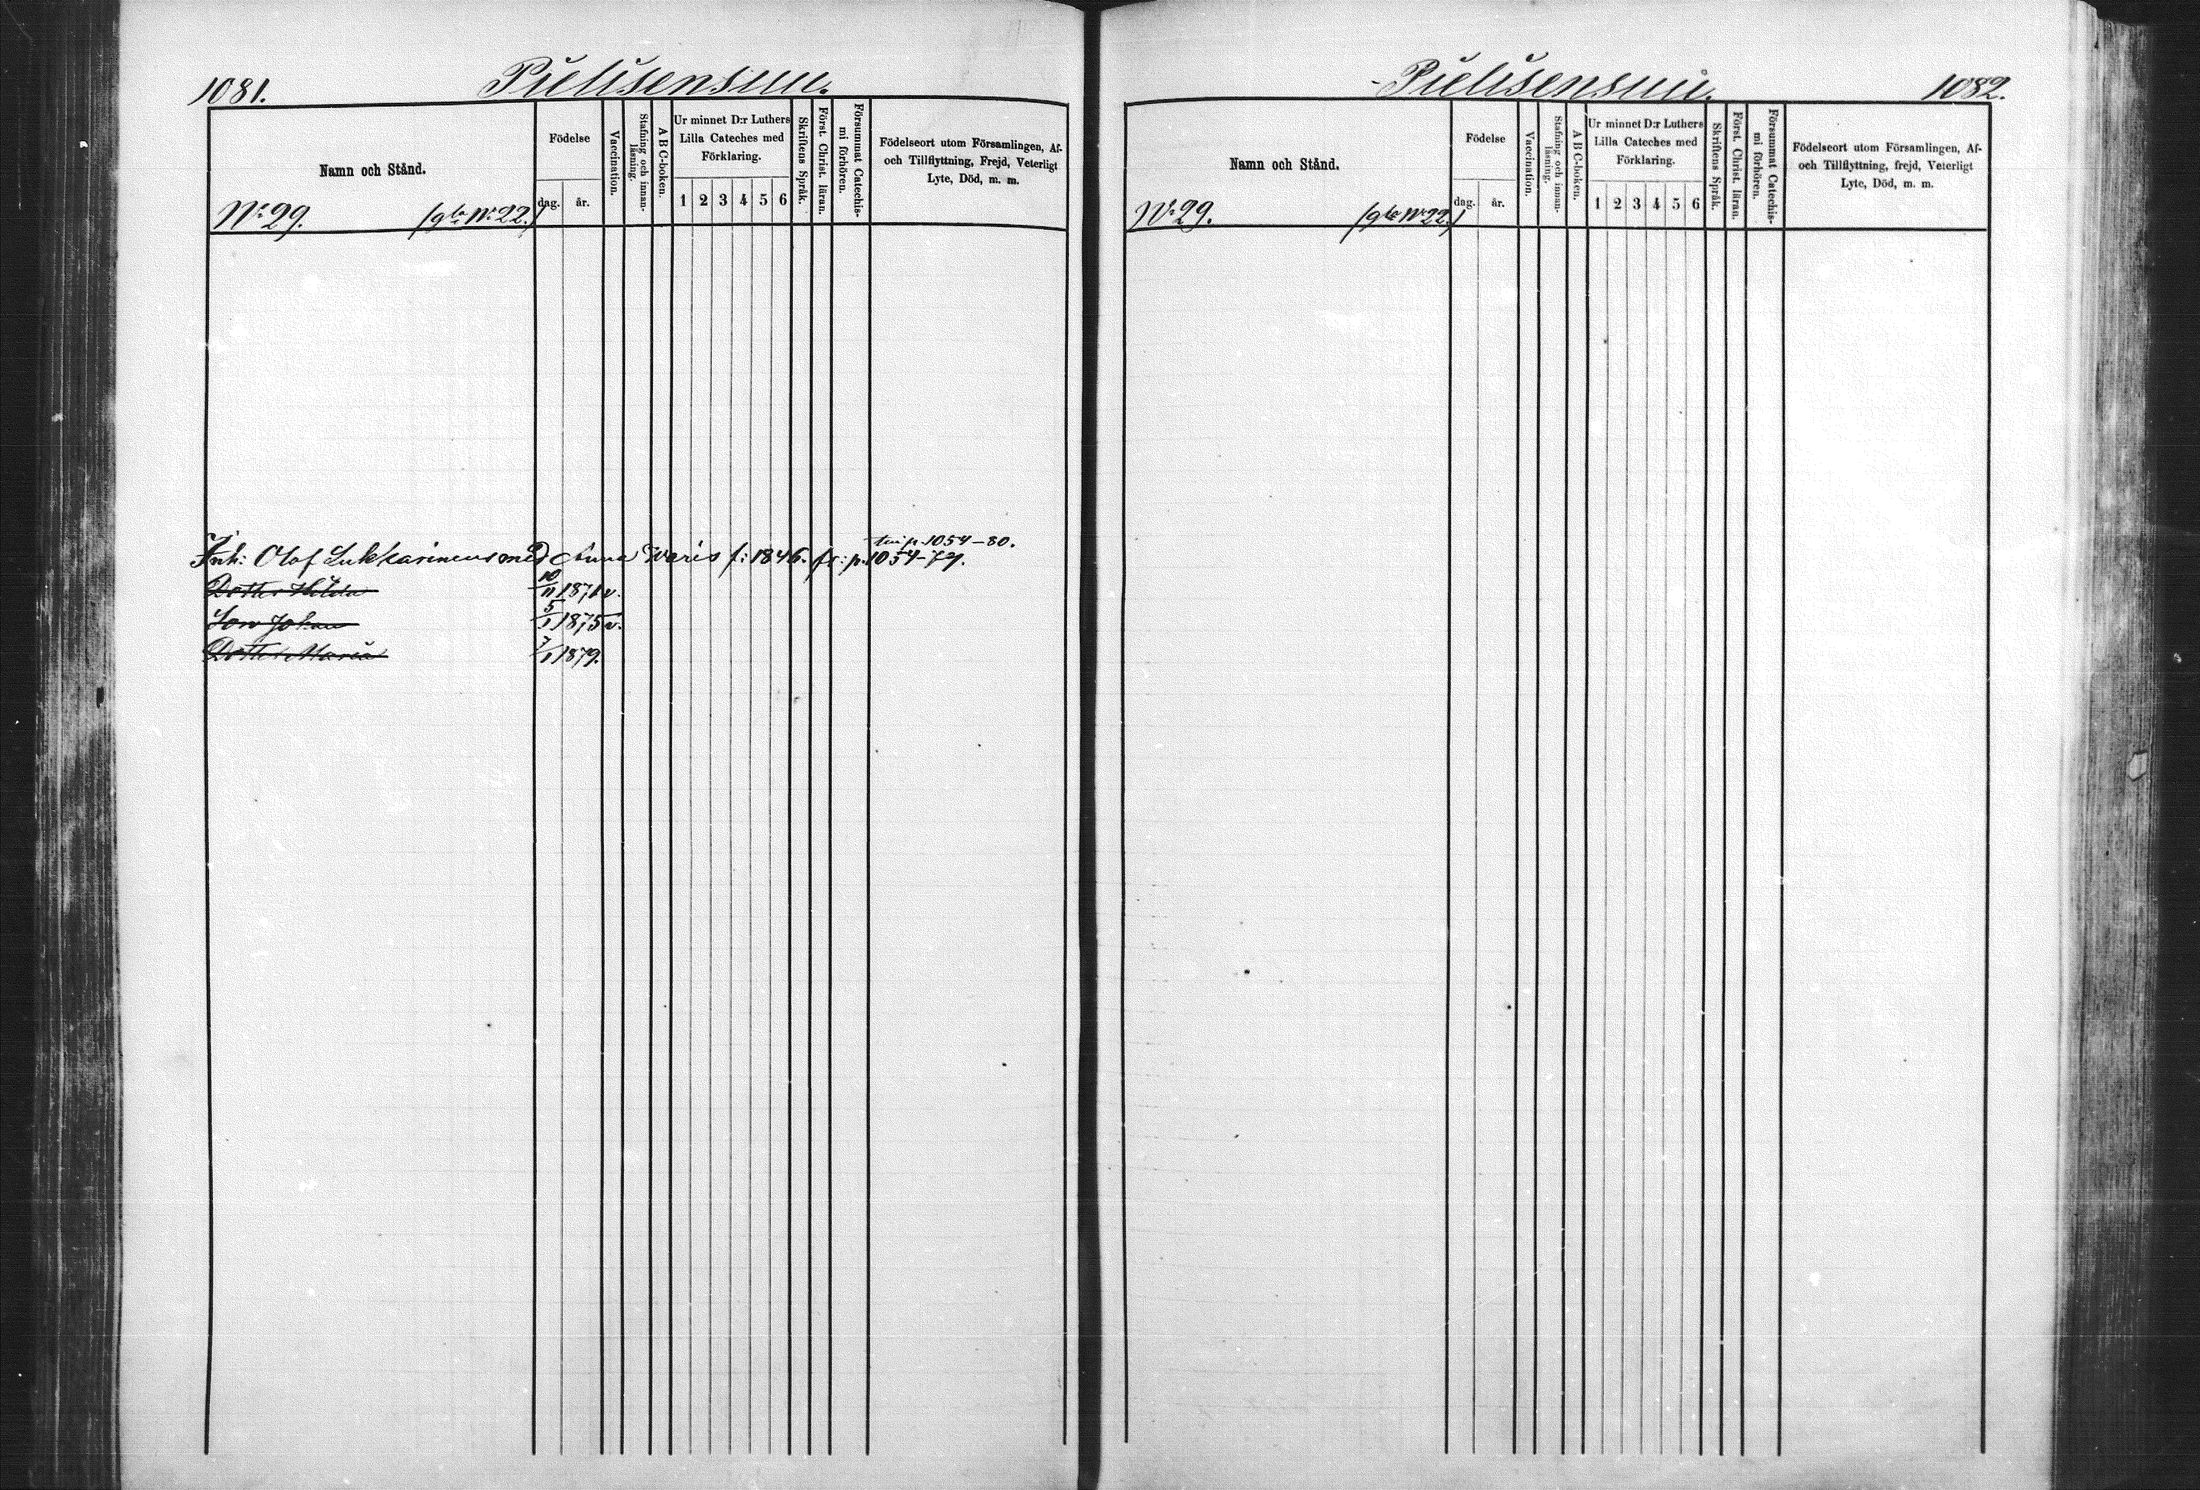 1081.
Pielisensuu.
Namn och Stånd.
Födelse
dag.
år.
Vaccination.
Stafning och innanläsning.
A B C-boken.
Ur minnet D:r Luthers
Lilla Cateches med
Förklaring.
1 2 3 4 5 6
Skriftens Språk.
Först. Christ. läran.
Försummat Catechismi förhören.
Födelseort utom Församlingen, Af-
och Tillflyttning, Frejd, Veterligt
Lyte, Död, m. m.
No 29.
No 22.)
till p. 1054-80.
Inh: Olof Lukkarinens med Anna Waris f: 1846. fr: p. 1054-79.
Dotter Hilda 10/11 1871 v.
Son Johan 5/1 1875 v.
Dotter Maria 7/1 1879.
Pielisensuu.
1082.
Namn och Stånd.
Födelse
dag.
år.
Vaccination.
Stafning och innanläsning.
A B C-boken.
Ur minnet D:r Luthers
Lilla Cateches med
Förklaring.
1 2 3 4 5 6
Skriftens Språk.
Först. Christ. läran.
Försummat Catechismi förhören.
Födelseort utom Församlingen, Af-
och Tillflyttning, frejd, Veterligt
Lyte, Död, m. m.
No 29.
No 22.)